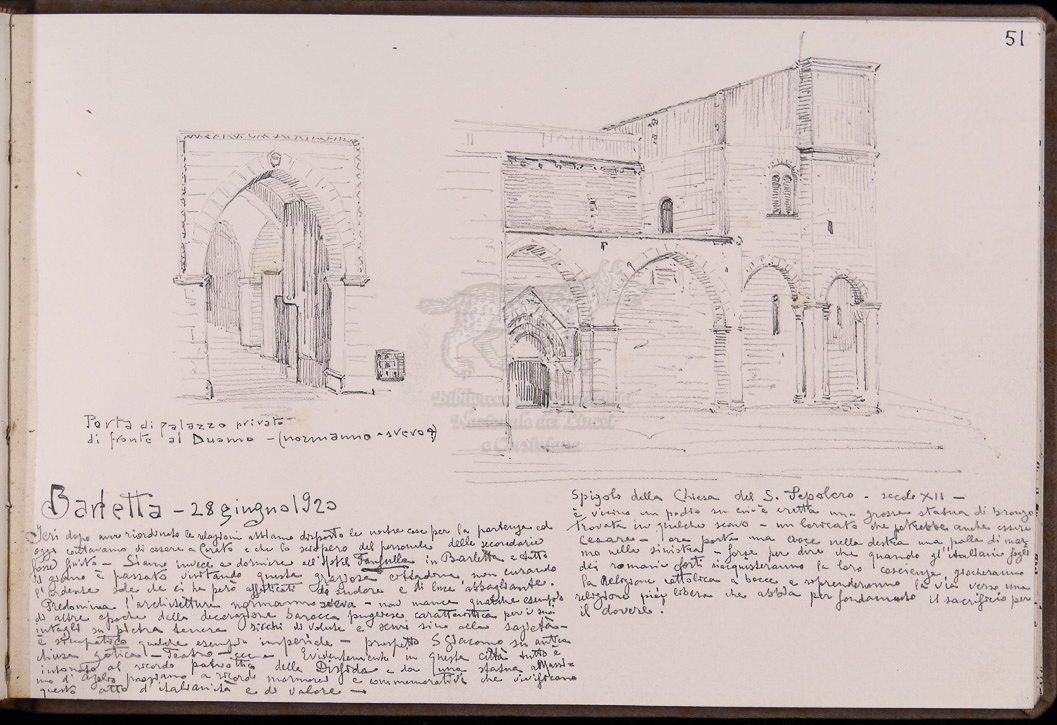 51
Porta di palazzo privato
di fronte al Duomo - (normanno-sveva)
Barletta - 28 giugno 1920
Ieri dopo aver riordinato le relazioni abbiamo disposto le nostre cose per la partenza ed
oggi contavamo di essere a Loreto e che lo sciopero del personale delle secondarie
fosse finito - Siamo invece a dormire all'Hotel Fanfulla in Barletta e tutto
il giorno è passato visitando questa graziosa cittadina, non curando
l'ardente sole che ci ha però affaticati di sudore e di luce abbagliante.
Predomina l'architettura normanno sveva - non manca qualche esempio
di altre epoche della decorazione barocca pugliese, caratteristica per i suoi
intagli su pietra tenera ricchi di volute e
è simpatico qualche esempio imperiale prospetto S Giacomo su antica
chiesa gotica! - Teatro - ecc - Evidentemente in questa città tutto è
intonato al ricordo patriottico della Disfida e da una statua a Massi-
mo d'Azelio passiamo a ricordi marmorei e commemorativi che vivificano
questo atto d'italianità e di valore -
Spigolo della Chiesa del S. Sepolcro - secolo XII -
è vicino un podio su cui è eretta una grossa statua di bronzo
trovata in qualche scavo - un loricato che potrebbe anche essere
Cesare - ora porta una croce nella destra una palla di mar
mo nella sinistra - forse per dire che quando gl'Italiani figli
dei romani forti riacquisteranno la loro coscienza giocheranno
la Religione cattolica a bocce e riprenderanno la via verso una
religione più libera che abbia per fondamento il sacrificio per
il dovere!